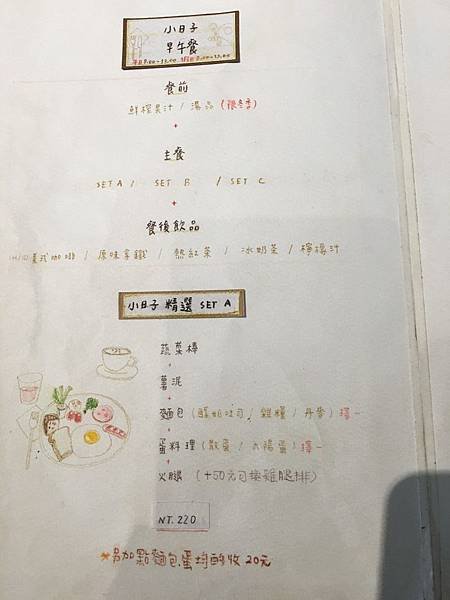 小日子
早午餐
餐前
鮮榨果汁 / 湯品 (限冬季)
+
主餐
SET A / SET B / SET C
+
餐後飲品
(H/I) 美式咖啡 / 原味拿鐵 / 熱紅茶 / 冰奶茶 / 檸檬汁
小日子 精選 SET A
蔬菜棒
+
薯泥
+
麵包 (鮮奶吐司 / 雜糧 / 丹麥) 擇一
+
蛋料理 (散蛋 / 太陽蛋) 擇一
+
火腿 (+50元可換雞腿排)
NT. 220
*另加點麵包.蛋均酌收20元